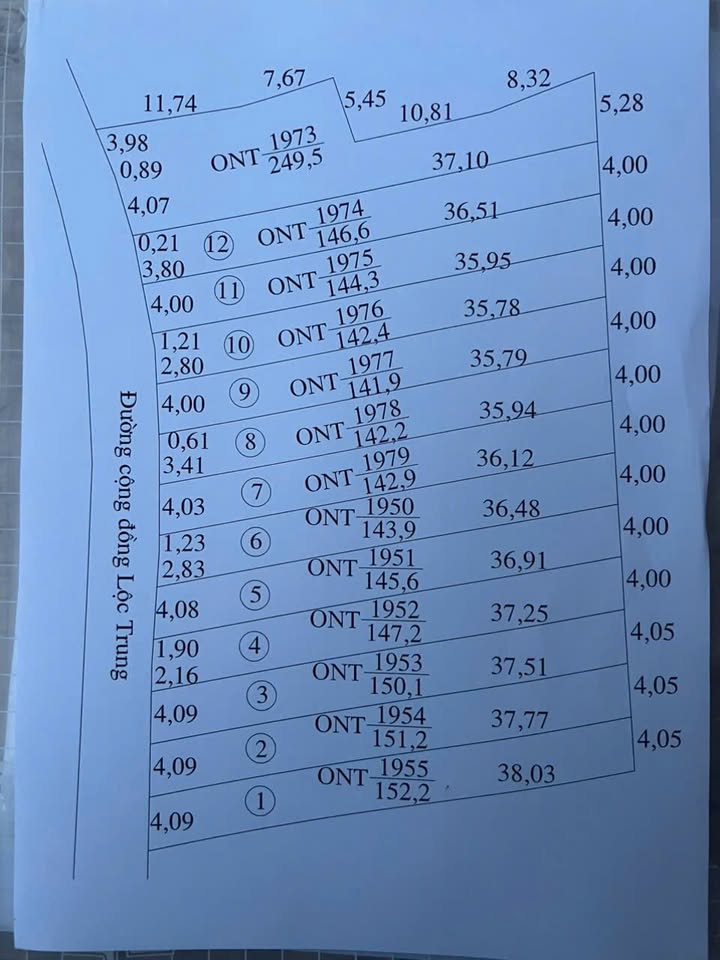 7,67
8,32
11,74
5,45
10,81
5,28
3,98
0,89
ONT 1973
249,5
37,10
4,00
4,07
0,21
12
ONT 1974
146,6
36,51
4,00
3,80
4,00
11
ONT 1975
144,3
35,95
4,00
1,21
2,80
10
ONT 1976
142,4
35,78
4,00
4,00
9
ONT 1977
141,9
35,79
4,00
0,61
3,41
8
ONT 1978
142,2
35,94
4,00
4,03
7
ONT 1979
142,9
36,12
4,00
1,23
2,83
6
ONT 1950
143,9
36,48
4,00
4,08
5
ONT 1951
145,6
36,91
4,00
1,90
2,16
4
ONT 1952
147,2
37,25
4,05
4,09
3
ONT 1953
150,1
37,51
4,05
4,09
2
ONT 1954
151,2
37,77
4,05
4,09
1
ONT 1955
152,2
38,03
Đường cộng đồng Lộc Trung